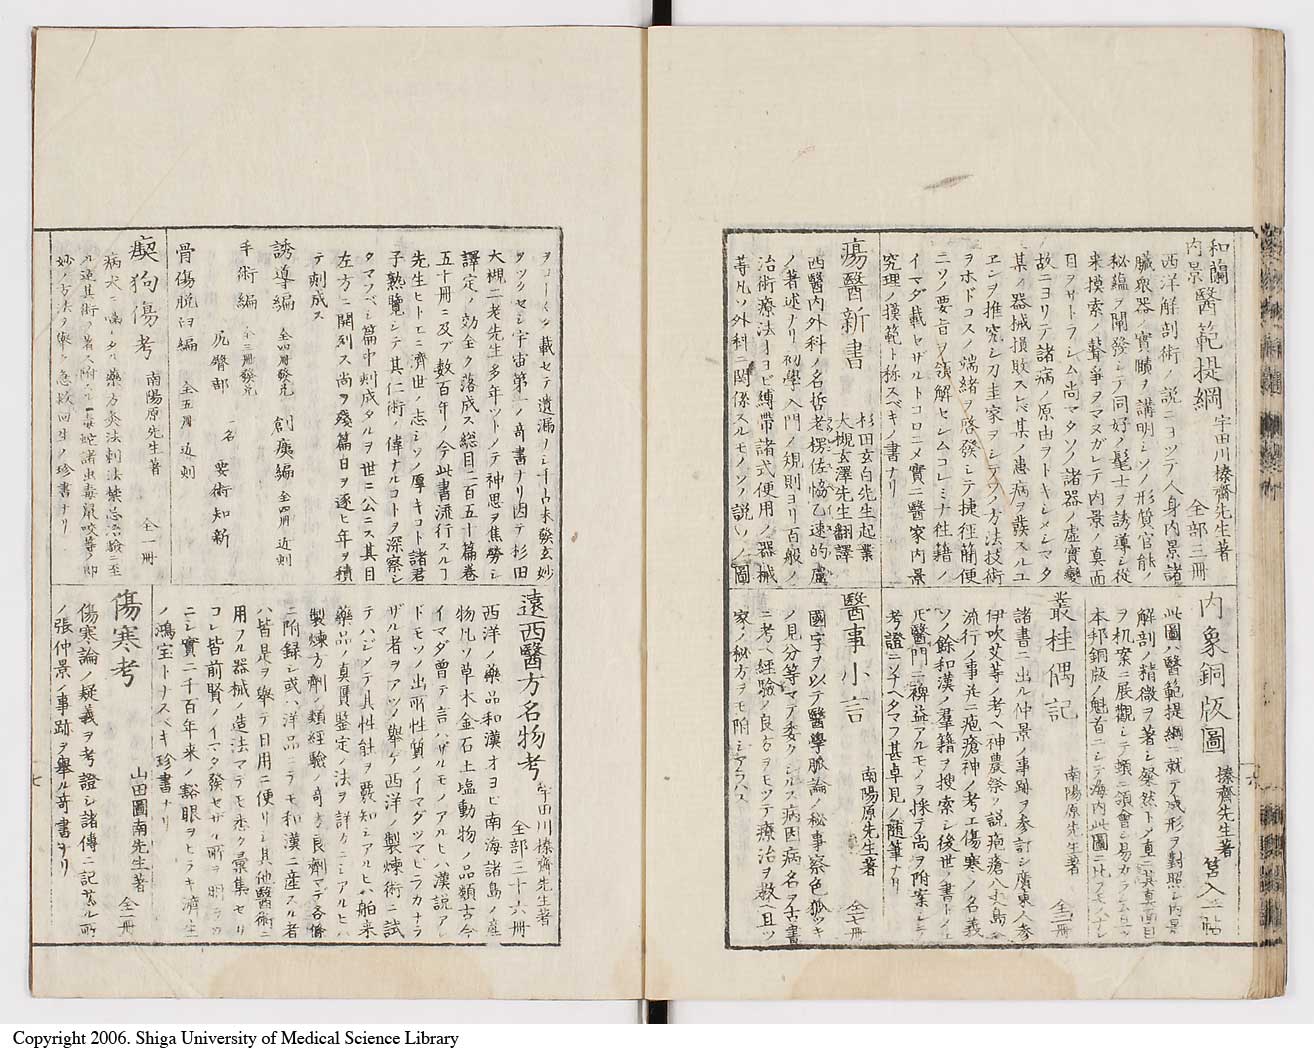 和蘭内景 醫範提綱 宇田川榛齋先生著 全部三冊
西洋解剖術ノ説ニヨツテ人身内景諸
臓衆器ノ實賾ヲ講明シソノ形質官能ノ
秘蘊ヲ闡發シテ同好ノ髦士ヲ誘導シ從
来摸索ノ聱爭ヲマヌガレテ内景ノ真面
目ヲサトラシム尚マタソノ諸器ノ虚實變
故ニヨリテ諸病ノ原由ヲトキシメシマタ
某ノ器械損敗スレバ某ノ患病ヲ發スルユ
ヱンヲ推究シ刀圭家ヲシテソノ方法技術
ヲホドコスノ端緒ヲ啓發シテ捷徑簡便
ニソノ要旨ヲ領解セシムコレミナ往籍ノ
イマダ載セザルトコロニメ實ニ醫家内景
究理ノ模範ト称スベキノ書ナリ
瘍醫新書 杉田玄白先生起業 大槻玄澤先生翻譯
西醫内外科ノ名哲老楞佐恊乙速的盧
ノ著述ナリ初學入門ノ規則ヨリ百般ノ
治術療法オヨビ縛帯諸式便用ノ器械
等凡ソ外科ニ関係スルモノソノ説ソノ圖
内象銅版圖 榛齋先生著 筥入一帖
此圖ハ醫範提綱ニ就テ成形ヲ對照シ内景
解剖ノ精微ヲ著シ粲然トメ直ニ其真面目
ヲ机案ニ展觀シテ頓ニ領會シ易カラシム
本邦銅版ノ魁首ニシテ海内此圖ニ比フモノハナシ
叢桂偶記 南陽原先生著 全二冊
諸書ニ出ル仲景ノ事跡ヲ参計シ廣東人参
伊吹艾等ノ考ヘ神農祭ノ説疱瘡八丈島
流行ノ事并ニ疱瘡神ノ考エ傷寒ノ名義
ソノ餘和漢ノ羣籍ヲ搜索シ後世ノ書トイエ
𪜈醫門ニ裨益アルモノヲ採テ尚ヲ附案シ
考證ニソナヘタマフ甚卓見ノ随筆ナリ
醫事小言 南陽原先生著 全七冊
國字ヲ以テ醫學脈論ノ秘事察色腹ツキ
ノ見分等マデ委クシルス病因病名ヲ古書
ニ考ヘ經驗ノ良方ヲモツテ療治ヲ教ヘ且ツ
家ノ秘方ヲモ附シアラハス
ヲコト〴〵ク載セテ遺漏ナシ千古未發玄妙
ヲツクセシ宇宙第一ノ奇書ナリ因テ杉田
大槻二老先生多年ツトメテ神思ヲ焦勞シ
譯定ノ功全ク落成ス総目二百五十篇巻
五十冊ニ及ブ数百年ノ今此書流行スルヿ
先生ヒトエニ濟世ノ志シノ厚キコト諸君
子熟覽シテ其仁術ノ偉ナルコトヲ深察シ
タマフベシ篇中刻成タルヲ世ニ公ニス其目
左方ニ開列ス尚ヲ殘篇日ヲ逐ヒ年ヲ積
テ刻成ス
誘導編 全四冊發兌 創痍編 全四冊 近刻
手術編 全三冊發兌
𠙚臀部 一名 要術知新
骨傷脱臼編 全五冊 近刻
瘈狗傷考 南陽原先生著 全一冊
病犬ニ噛タル藥方灸法刺法禁忌治驗ニ至
ル迄其術ヲ著ス附ニ一毒蛇諸虫毒鼠咬等ノ即
妙ノ方法ヲ載ス急救回生ノ珍書ナリ
遠西醫方名物考 宇田川榛齋先生著 全部三十六冊
西洋ノ藥品和漢オヨビ南海諸島ノ産
物凡ソ草木金石土塩動物ノ品類古今
イマダ曾テ言ハザルモノアルヒハ漢説アレ
ドモソノ出所性質ノイマダツマビラカナラ
ザル者ヲアツメ舉ゲ西洋ノ製煉術ニ試
テハジメテ其性能ヲ覈知シアルヒハ舶来
藥品ノ真贋鑒定ノ法ヲ詳ラカニシアルヒハ
製煉方劑ノ類経驗ノ奇方良劑マデ各條
ニ附録シ或ハ洋品ニテモ和漢ニ産スル者
ハ皆是ヲ舉テ日用ニ便リシ其他醫術ニ
用フル器械ノ造法マデモ悉ク彙集セリ
コレ皆前賢ノイマタ發セザル所ヲ明ラカ
ニシ實ニ二千百年来ノ豁眼ヲヒラキ濟生
ノ鴻宝トナスベキ珍書ナリ
傷寒考 山田圖南先生著 全一冊
傷寒論ノ疑義ヲ考證シ諸傳ニ記スル所
ノ張仲景ノ事跡ヲ舉ル奇書ナリ
Copyright 2006. Shiga University of Medical Science Library